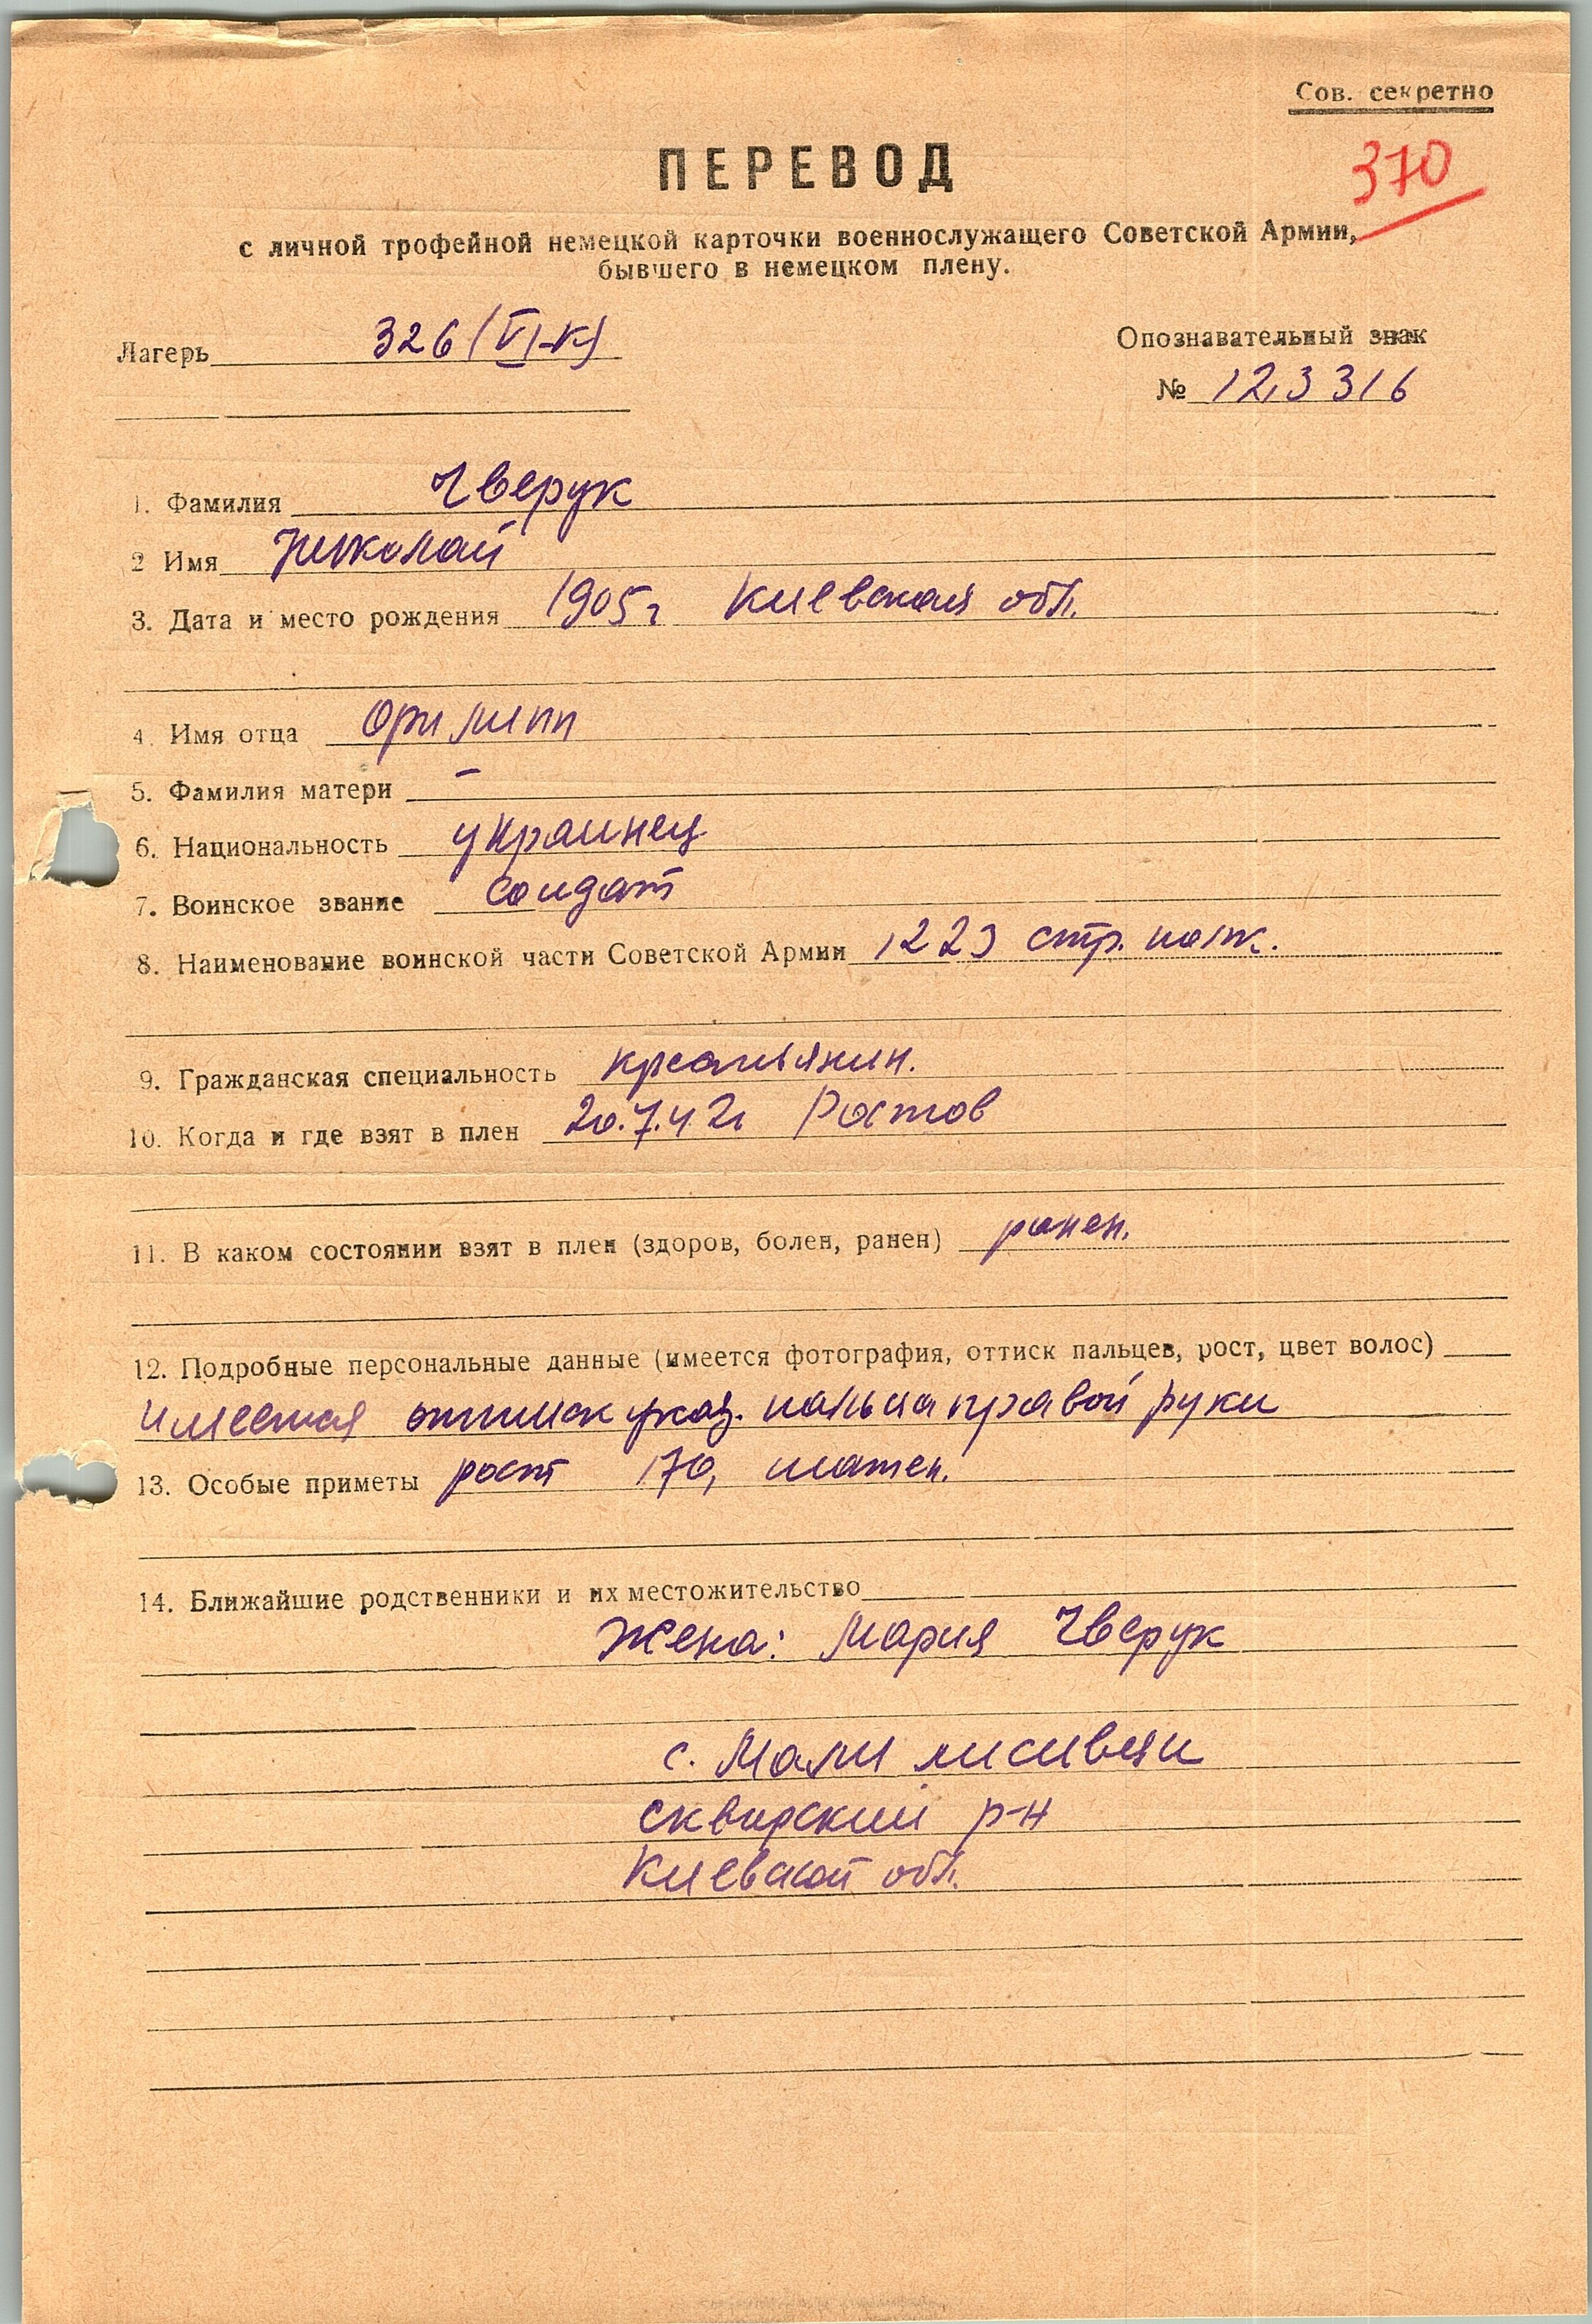 Сов. секретно
ПЕРЕВОД
370
с личной трофейной немецкой карточки военнослужащего Советской Армии,
бывшего в немецком плену.
Лагерь 326 (VI-К)
Опознавательный знак
№ 123316
1. Фамилия Чверук
2 Имя Николай
3. Дата и место рождения 1905г Киевская обл.
4. Имя отца Филипп
5. Фамилия матери –
6. Национальность украинец
7. Воинское звание солдат
8. Наименование воинской части Советской Армии 1223 стр. полк.
9. Гражданская специальность крестьянин.
10. Когда и где взят в плен 20.7.42г Ростов
11. В каком состоянии взят в плен (здоров, болен, ранен) ранен.
12. Подробные персональные данные (имеется фотография, оттиск пальцев, рост, цвет волос)
имеется оттиск указ. пальца правой руки
13. Особые приметы рост 170, шатен.
14. Ближайшие родственники и их местожительство
Жена: Мария Чверук
с. Мали лисивци
сквирский р-н
Киевской обл.